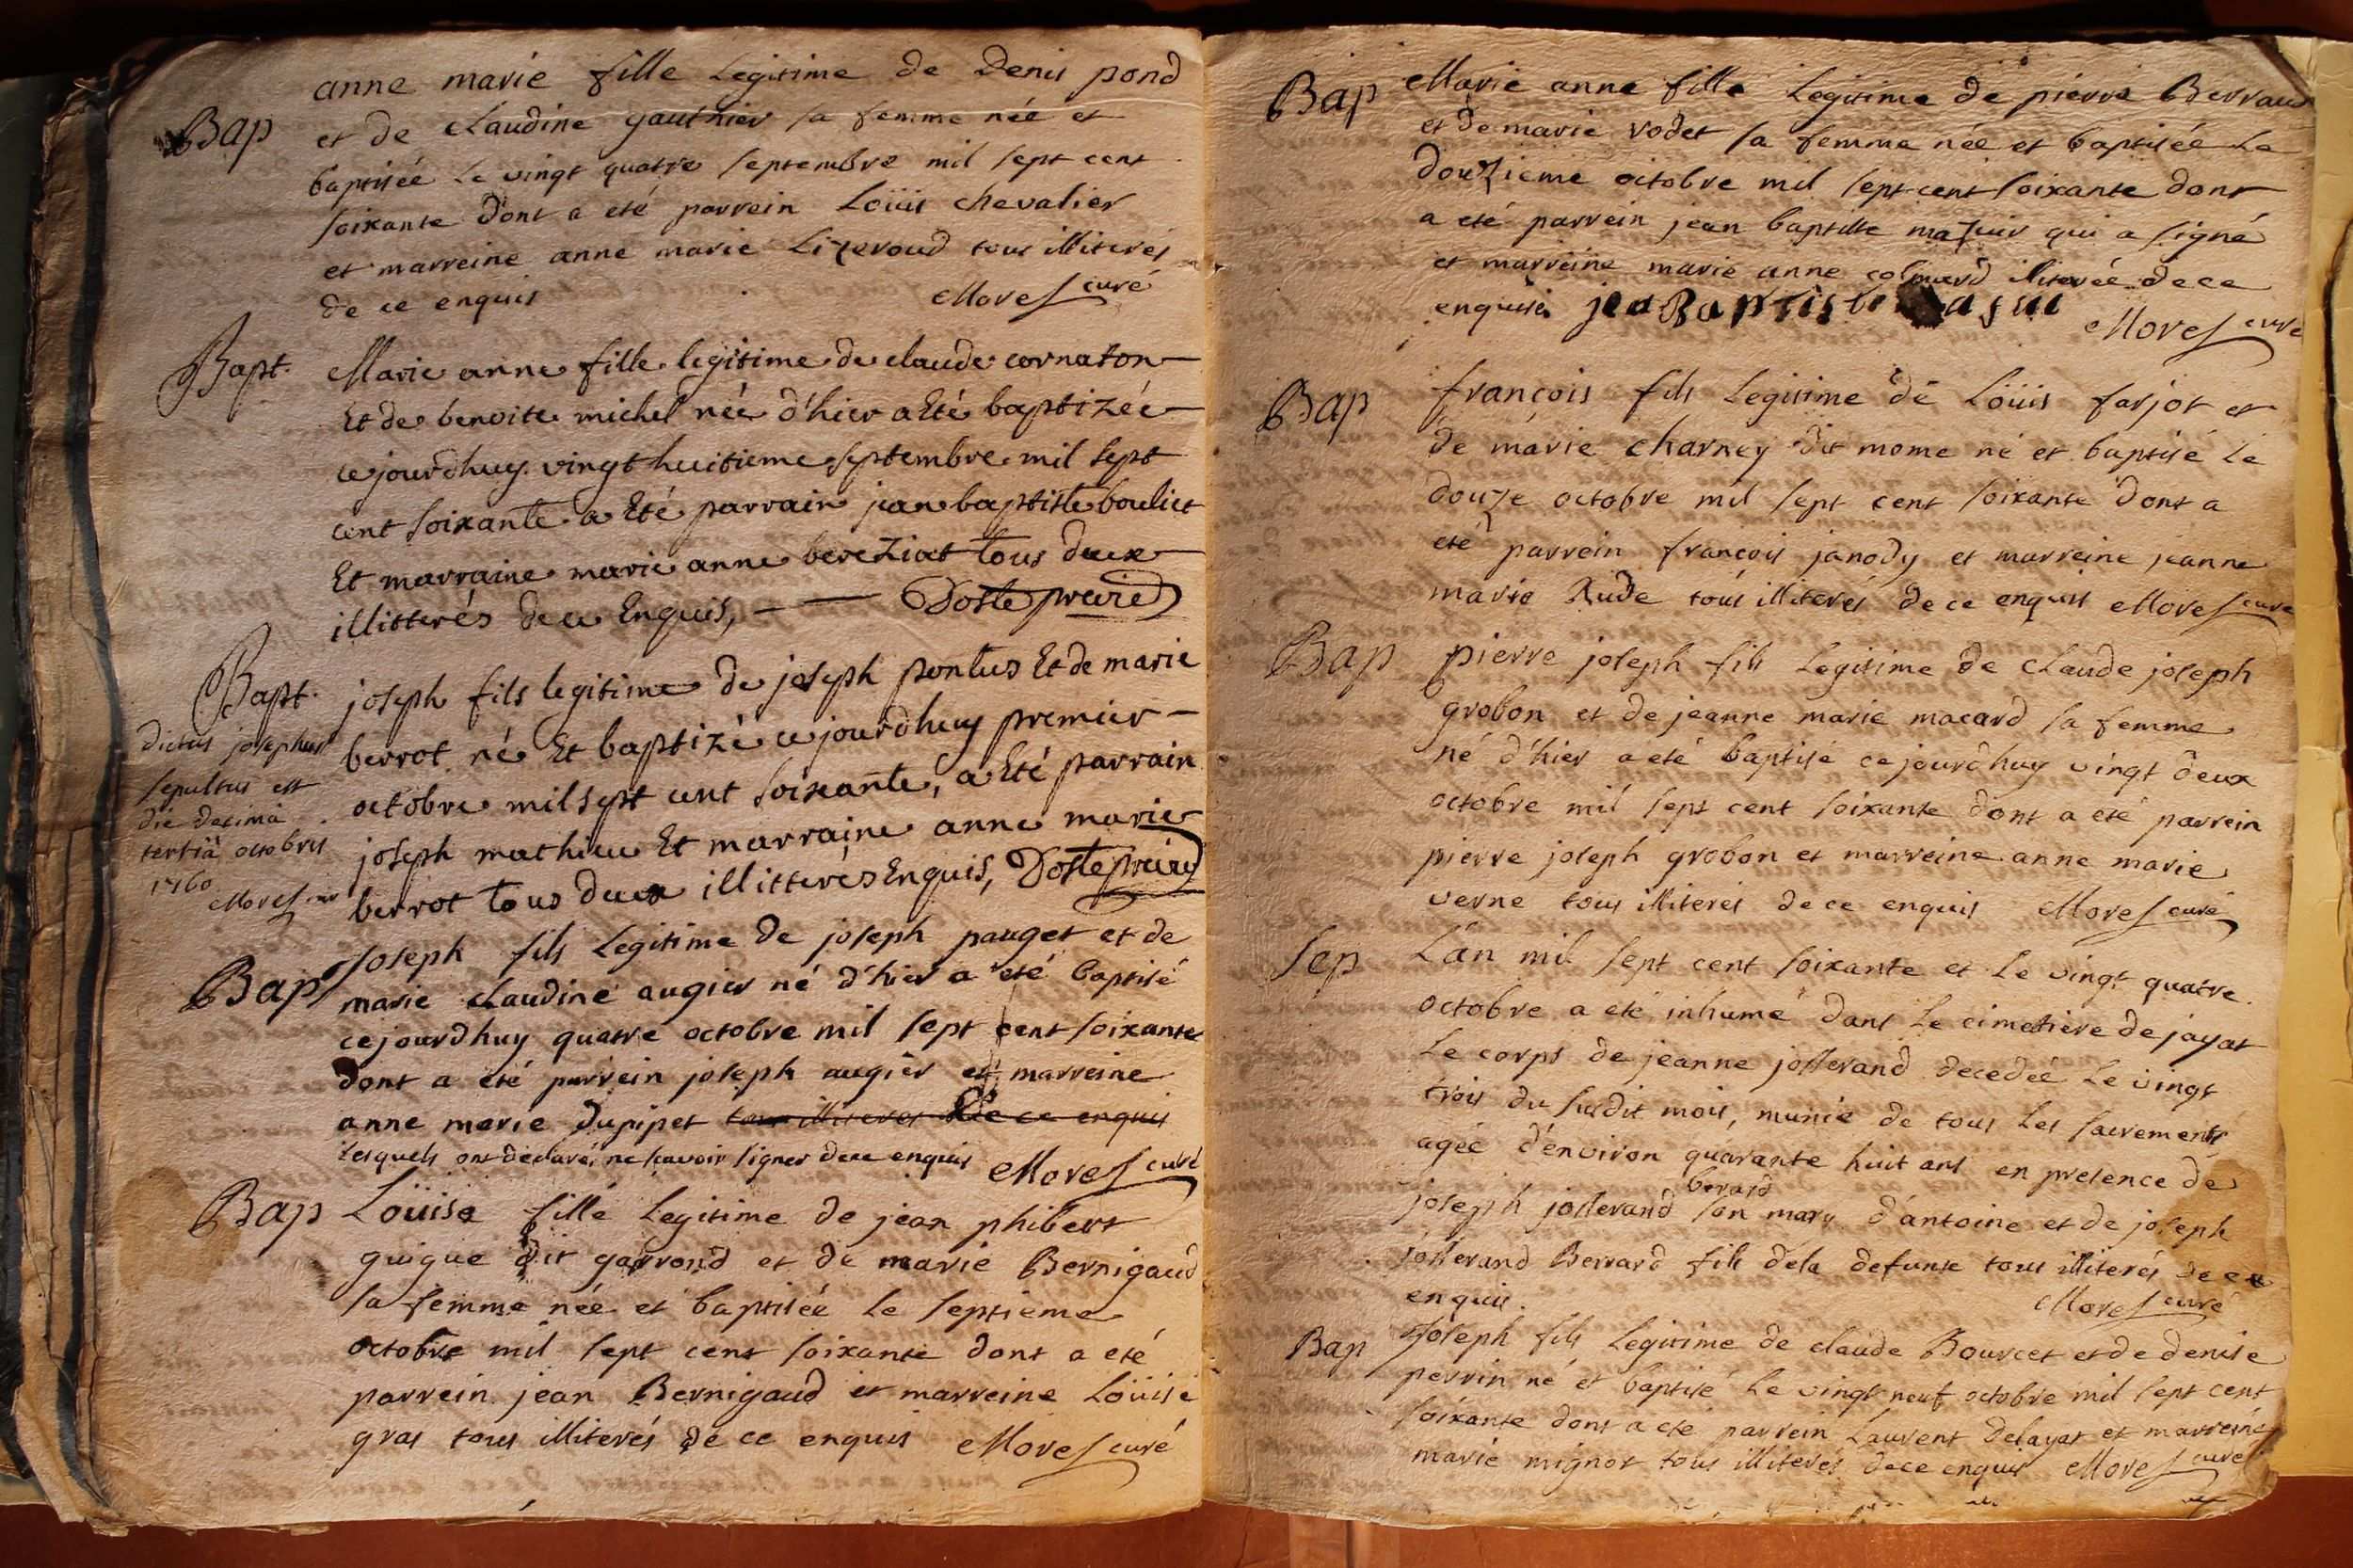 anne marie fille Legitime de Denis pond
Bap
et de claudine gauthier sa femme née et
baptisée Le vingt quatre septembre mil sept cent
soixante dont a eté parrein Loüis chevalier
et marreine anne marie Lizeroud tous illiterés
de ce enquis Morel curé
Bapt. Marie anne fille legitime de claude cornaton
Et de benoite michel née d'hier a Eté baptizée
cejourdhuy vingt huitieme septembre mil sept
cent soixante a Eté parrain jean baptiste bouliet
Et marraine marie anne bereziat tous deux
illitterés de ce Enquis,
Bapt. joseph fils legitime de joseph pontus Et de marie
berrot né Et baptizé cejourdhuy premier
octobre mil sept cent soixante, a Eté parrain
joseph mathieu Et marraine anne marie
berrot tous deux illitterés Enquis,
dictus josephus
sepultus est
die decimâ
tertiâ octobris
1760
Morel
Bap Joseph fils Legitime de joseph pauget et de
marie claudine augier né d'hier a eté baptisé
cejourdhuy quatre octobre mil sept cent soixante
dont a eté parrein joseph augier et marreine
anne marie Dupipet tous illiterés de ce enquis
Lesquels ont declaré ne scavoir signer de ce enquis Morel curé
Bap Loüise fille Legitime de jean phibert
guigue dit garrond et de marie Bernigaud
sa femme née et baptisée le septieme
octobre mil sept cent soixante dont a eté
parrein jean Bernigaud et marreine Loüise
gras tous illiterés de ce enquis Morel curé
Bap Marie anne fille Legitime de pierre Berraud
et de marie vodet sa femme née et baptisée Le
douzieme octobre mil sept cent soixante dont
a eté parrein jean baptiste mazuir qui a signé
et marreine marie anne illiterée de ce
enquise jea Baptiste Morel curé
Bap françois fils Legitime de Loüis farjot et
de marie charney dit mome né et baptisé le
douze octobre mil sept cent soixante dont a
eté parrein françois janody et marreine jeanne
marie Rude tous illiterés de ce enquis Morel curé
Bap pierre joseph fils Legitime de claude joseph
grobon et de jeanne marie macard sa femme
né d'hier a eté baptisé cejourdhuy vingt deux
octobre mil sept cent soixante dont a eté parrein
pierre joseph grobon et marreine anne marie
verne tous illiterés de ce enquis Morel curé
Sep L'an mil sept cent soixante et Le vingt quatre
octobre a eté inhumé dans Le cimetiere de jayat
Le corps de jeanne josserand decedée Le vingt
trois du susdit mois, munie de tous Les sacrements
agée d'environ quarante huit ans en presence de
berard
joseph josserand son mary d'antoine et de joseph
josserand Berrard fils dela defunte tous illiterés de ce
enquis. Morel curé
Bap Joseph fils Legitime de claude Bourcet et de denise
perrin né et baptisé Le vingt neuf octobre mil sept cent
soixante dont a eté parrein Laurent Delayat et marreine
marie mignot tous illiterés de ce enquis Morel curé